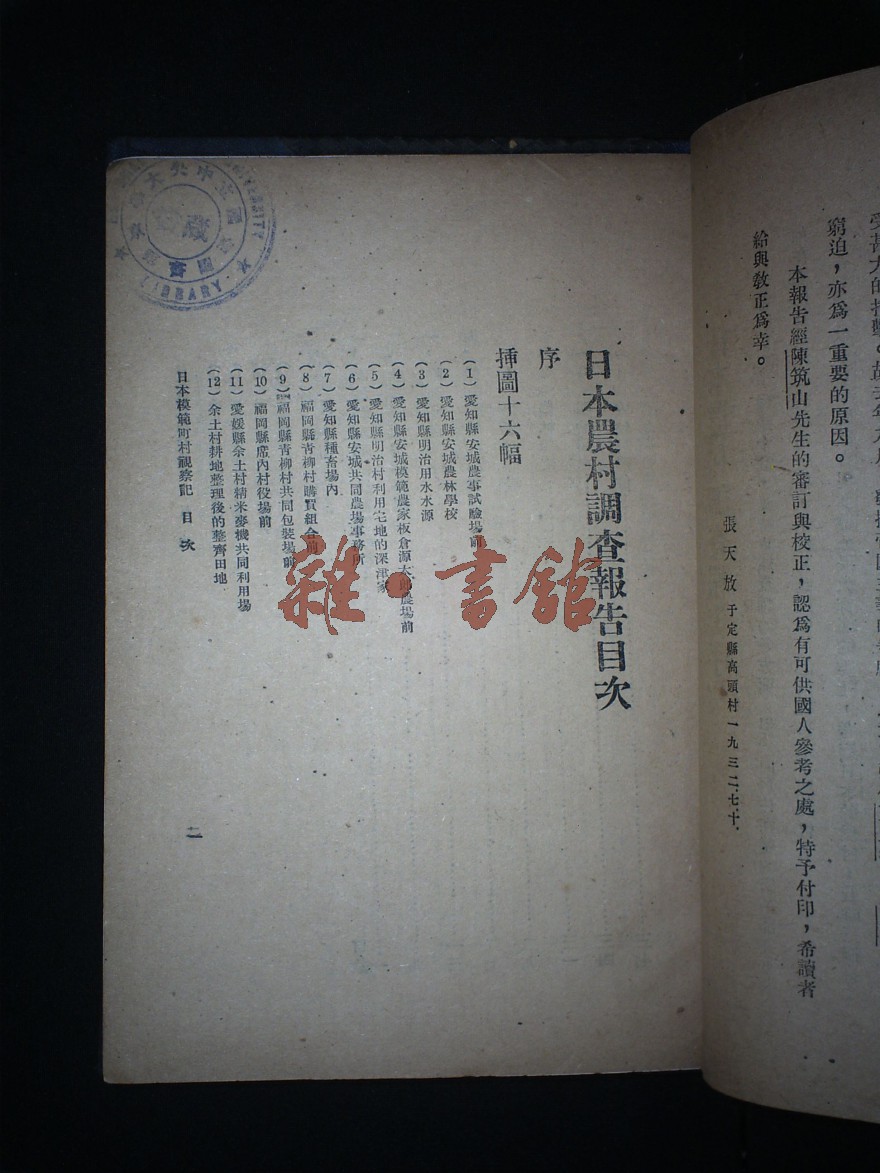 窮迫，亦爲一重要的原因。
本報告經陳筑山先生的審訂與校正，認爲有可供國人參考之處，特予付印，希讀者
給與敎正爲幸。
張天放 于定縣高頭村一九三二、七、十、
日本農村調查報告目次
序
揷圖十六幅
(1) 愛知縣安城農事試驗場前
(2) 愛知縣安城農林學校
(3) 愛知縣明治用水水源
(4) 愛知縣安城模範農家板倉源太郎農場前
(5) 愛知縣明治村利用宅地的深津家
(6) 愛知縣安城共同農場事務所
(7) 愛知縣種畜場內
(8) 福岡縣靑柳村購買組合前
(9) 福岡縣靑柳村共同包裝場前
(10) 福岡縣席內村役場前
(11) 愛媛縣余土村精米麥機共同利用場
(12) 余土村耕地整理後的整齊田地
日本模範町村視察記 目次
二
雜·書館
LIBRARY